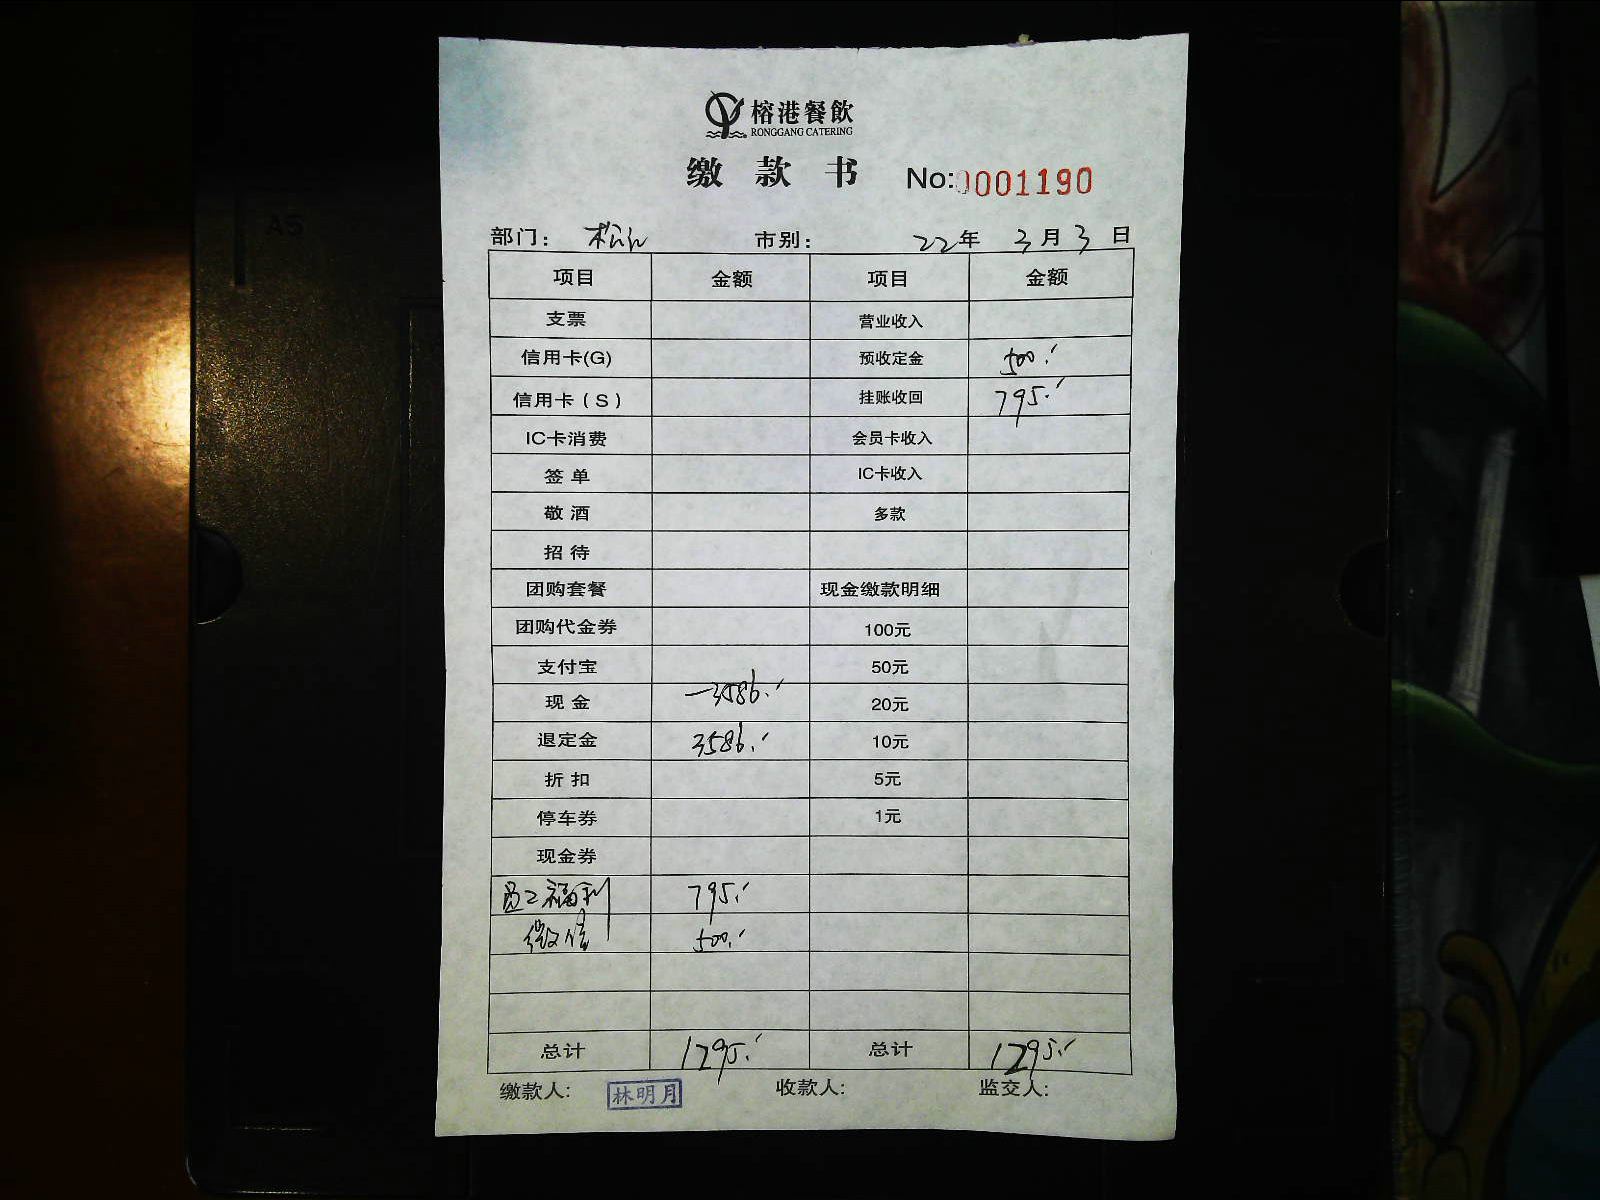 A5
榕港餐飲
RONGGANG CATERING
缴款书 No:0001190
部门： 市别： 22年 3月 3日
项目 金额 项目 金额
支票 营业收入
信用卡(G) 预收定金 500.-
信用卡（S） 挂账收回 795.-
IC卡消费 会员卡收入
签单 IC卡收入
敬酒 多款
招待
团购套餐 现金缴款明细
团购代金券 100元
支付宝 50元
现金 -3586.- 20元
退定金 3586.- 10元
折扣 5元
停车券 1元
现金券
员工福利 795.-
微信 500.-
总计 1295.- 总计 1295.-
缴款人: 林明月 收款人: 监交人: